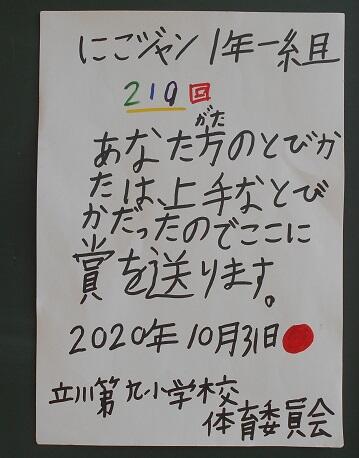 にこジャン 1年一組
219回
がた
あなた方のとびか
たは、上手なとび
かだったのでここに
賞を送ります。
2020年10月31日
立川第九小学校
体育委員会